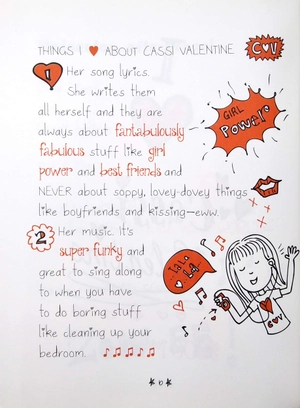 THINGS I ♥ ABOUT CASSI VALENTINE
C♥V
1 Her song lyrics.
She writes them
all herself and they are
always about fantabulously
fabulous stuff like girl
power and best friends and
NEVER about soppy, lovey-dovey things
like boyfriends and kissing—eww.
GIRL
Power
2 Her music. It's
super funky and
great to sing along
to when you have
to do boring stuff
like cleaning up your
bedroom. ♪♫♪♫♪
La La
La!
C♥V
*6*